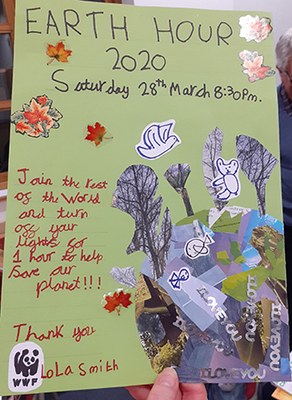 EARTH HOUR
2020
Saturday 28th March 8:30Pm.
Join the rest
of the World
and turn
off your
lights for
1 hour to help
Save our
planet!!!
Thank you
LOLA Smith
WWF
I LOVE YOU
I LOVE YOU
I LOVE YOU
I LOVE YOU